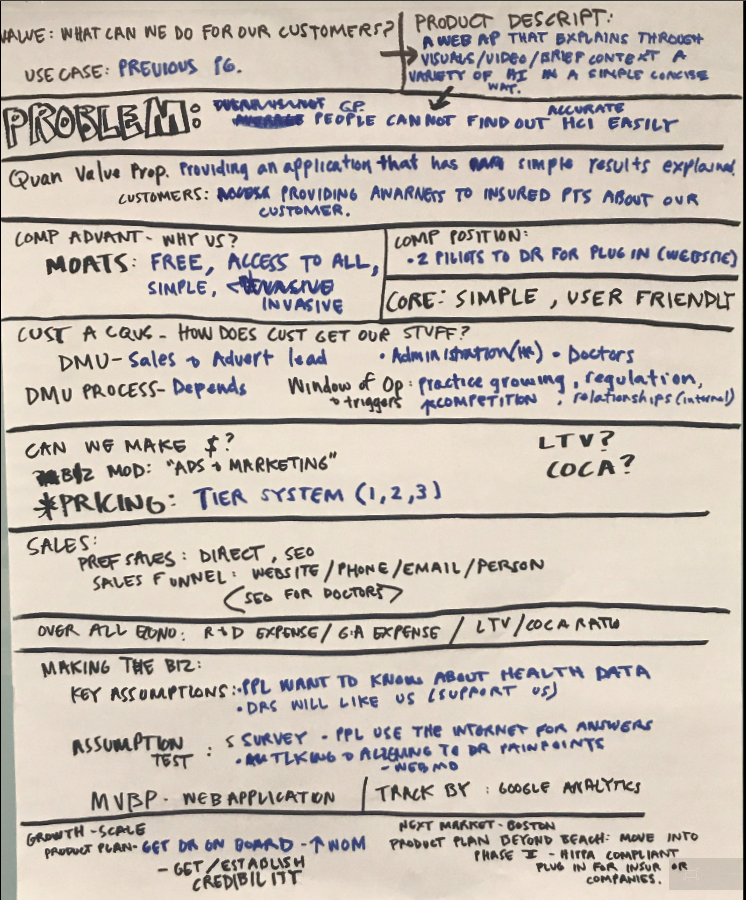 VALUE: WHAT CAN WE DO FOR OUR CUSTOMERS?
USE CASE: PREVIOUS PG.
PRODUCT DESCRIPT:
A WEB AP THAT EXPLAINS THROUGH
VISUALS/VIDEO/BRIEF CONTEXT A
VARIETY OF HI IN A SIMPLE CONCISE
WAY.
PROBLEM: G.P. ACCURATE
PEOPLE CANNOT FIND OUT HCI EASILY
Quan Value Prop. Providing an application that has simple results explained.
CUSTOMERS: PROVIDING AWARNESS TO INSURED PTS ABOUT OUR
CUSTOMER.
COMP ADVANT - WHY US?
MOATS: FREE, ACCESS TO ALL,
SIMPLE,
INVASIVE
COMP POSITION:
• 2 PILIOTS TO DR FOR PLUG IN (WEBSITE)
CORE: SIMPLE, USER FRIENDLY
CUST ACQUS - HOW DOES CUST GET OUR STUFF?
DMU - Sales → Advert lead • Administration(HR) • Doctors
DMU PROCESS - Depends
Window of Op: practice growing, regulation,
→ triggers ↑COMPETITION, relationships (internal)
CAN WE MAKE $?
BIZ MOD: "ADS → MARKETING"
*PRICING: TIER SYSTEM (1,2,3)
LTV?
COCA?
SALES:
PREF SALES: DIRECT, SEO
SALES FUNNEL: WEBSITE/PHONE/EMAIL/PERSON
(SEO FOR DOCTORS)
OVER ALL ECONO: R+D EXPENSE/G.A EXPENSE / LTV/COCA RATIO
MAKING THE BIZ:
KEY ASSUMPTIONS: • PPL WANT TO KNOW ABOUT HEALTH DATA
• DRS WILL LIKE US (SUPPORT US)
ASSUMPTION TEST: SURVEY • PPL USE THE INTERNET FOR ANSWERS
• TLKING → ALIGNING TO DR PAINPOINTS
- WEB MD
MVBP - WEB APPLICATION
TRACK BY: GOOGLE ANALYTICS
GROWTH - SCALE
PRODUCT PLAN - GET DR ON BOARD - ↑ WOM
- GET/ESTABLISH
CREDIBILITY
NEXT MARKET - BOSTON
PRODUCT PLAN BEYOND BEACH: MOVE INTO
PHASE II - HIPPA COMPLIANT
PLUG IN FOR INSUR OR
COMPANIES.